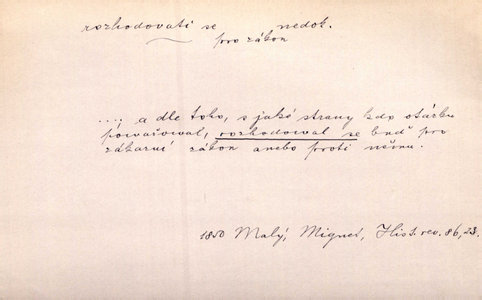 rozhodovati se nedok.
pro zákon
...., a dle toho, s jaké strany kdo otázku
powařowal, rozhodowal se buď pro
zákon anebo proti němu.
1850 Malý, Mignet, Hist. rev. 86, 23.